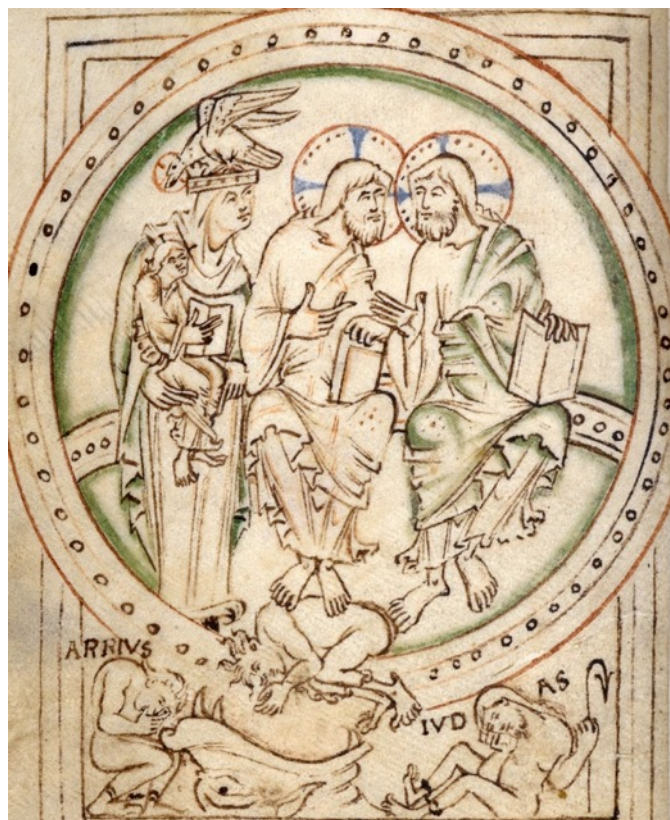 ARRIVS
IVD AS